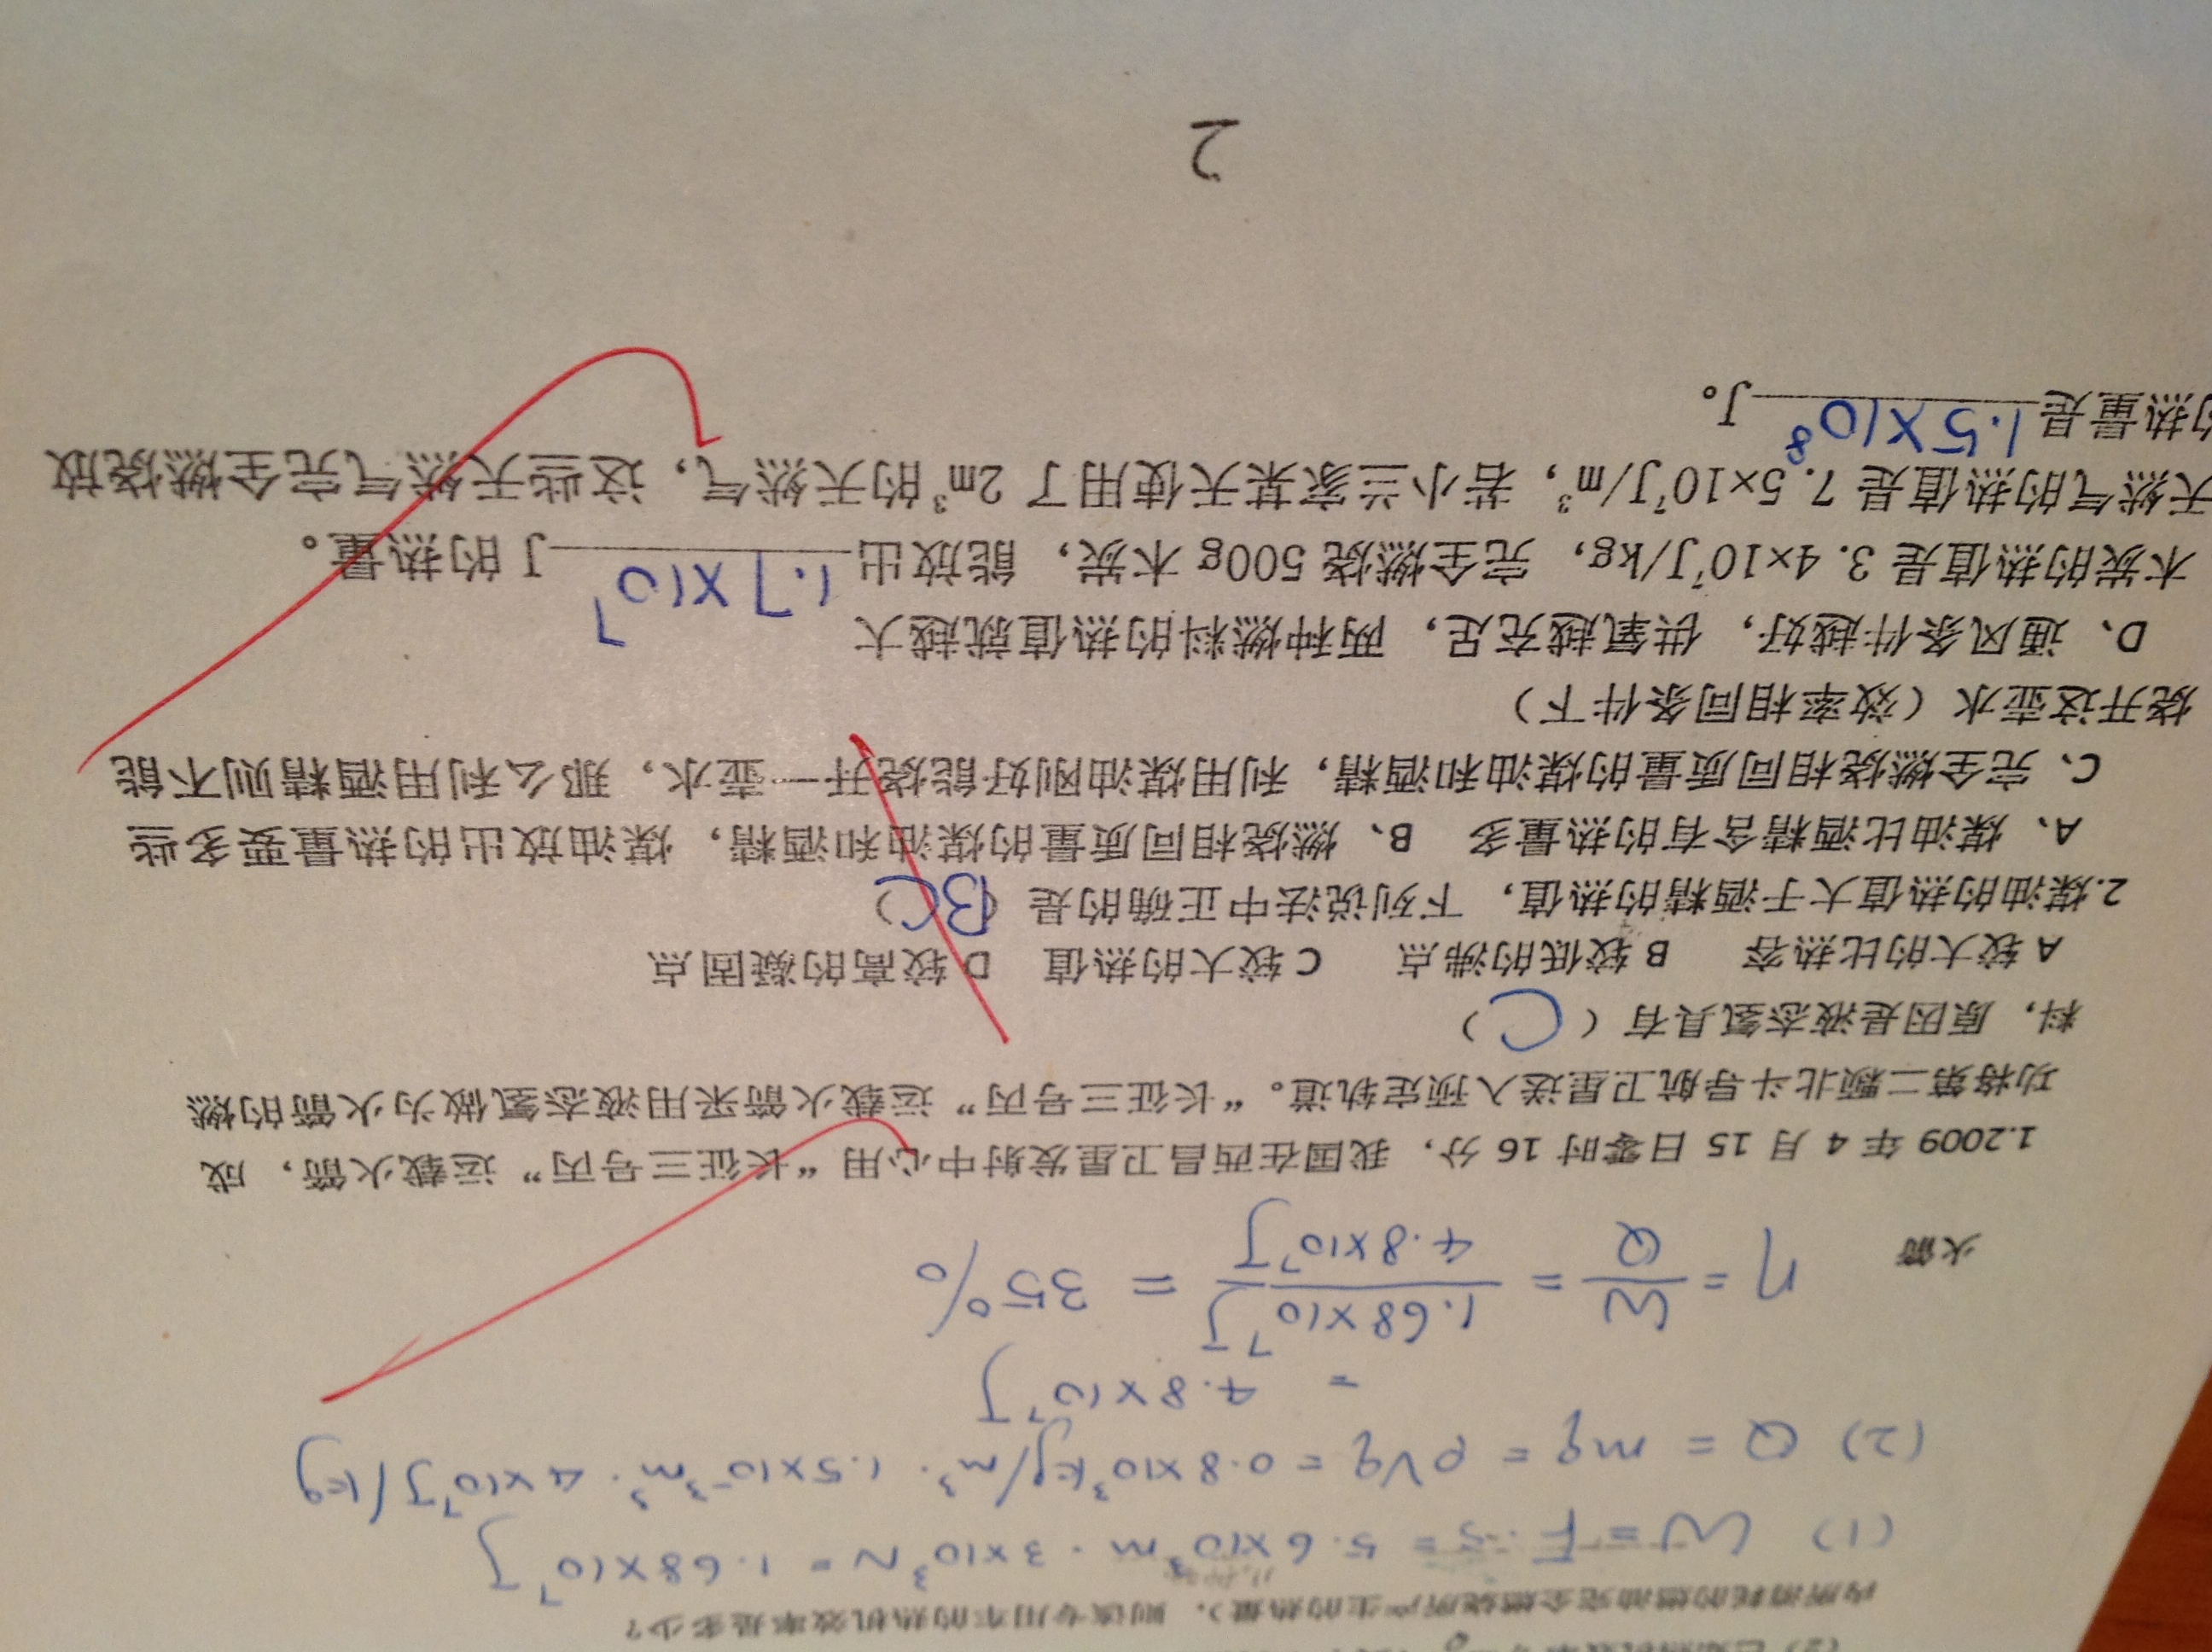 内所消耗的燃油完全燃烧所产生的热量）．则该专用车的热机效率是多少？
(1) W = F·s = 5.6×10³m · 3×10³N = 1.68×10⁷J
(2) Q = mq = ρVq = 0.8×10³kg/m³ · 1.5×10⁻³m³ · 4×10⁷J/kg
= 4.8×10⁷J
η = W/Q = 1.68×10⁷J/4.8×10⁷J = 35%
火箭
1.2009 年 4 月 15 日零时 16 分，我国在西昌卫星发射中心用“长征三号丙”运载火箭，成
功将第二颗北斗导航卫星送入预定轨道。“长征三号丙”运载火箭采用液态氢做为火箭的燃
料，原因是液态氢具有（ C ）
A 较大的比热容 B 较低的沸点 C 较大的热值 D 较高的凝固点
2.煤油的热值大于酒精的热值，下列说法中正确的是（BC）
A、煤油比酒精含有的热量多 B、燃烧相同质量的煤油和酒精，煤油放出的热量要多些
C、完全燃烧相同质量的煤油和酒精，利用煤油刚好能烧开一壶水，那么利用酒精则不能
烧开这壶水（效率相同条件下）
D、通风条件越好，供氧越充足，两种燃料的热值就越大
木炭的热值是 3.4×10⁷J/kg，完全燃烧 500g 木炭，能放出 1.7×10⁷ J 的热量。
天然气的热值是 7.5×10⁷J/m³，若小兰家某天使用了 2m³的天然气，这些天然气完全燃烧放
的热量是 1.5×10⁸ J。
2